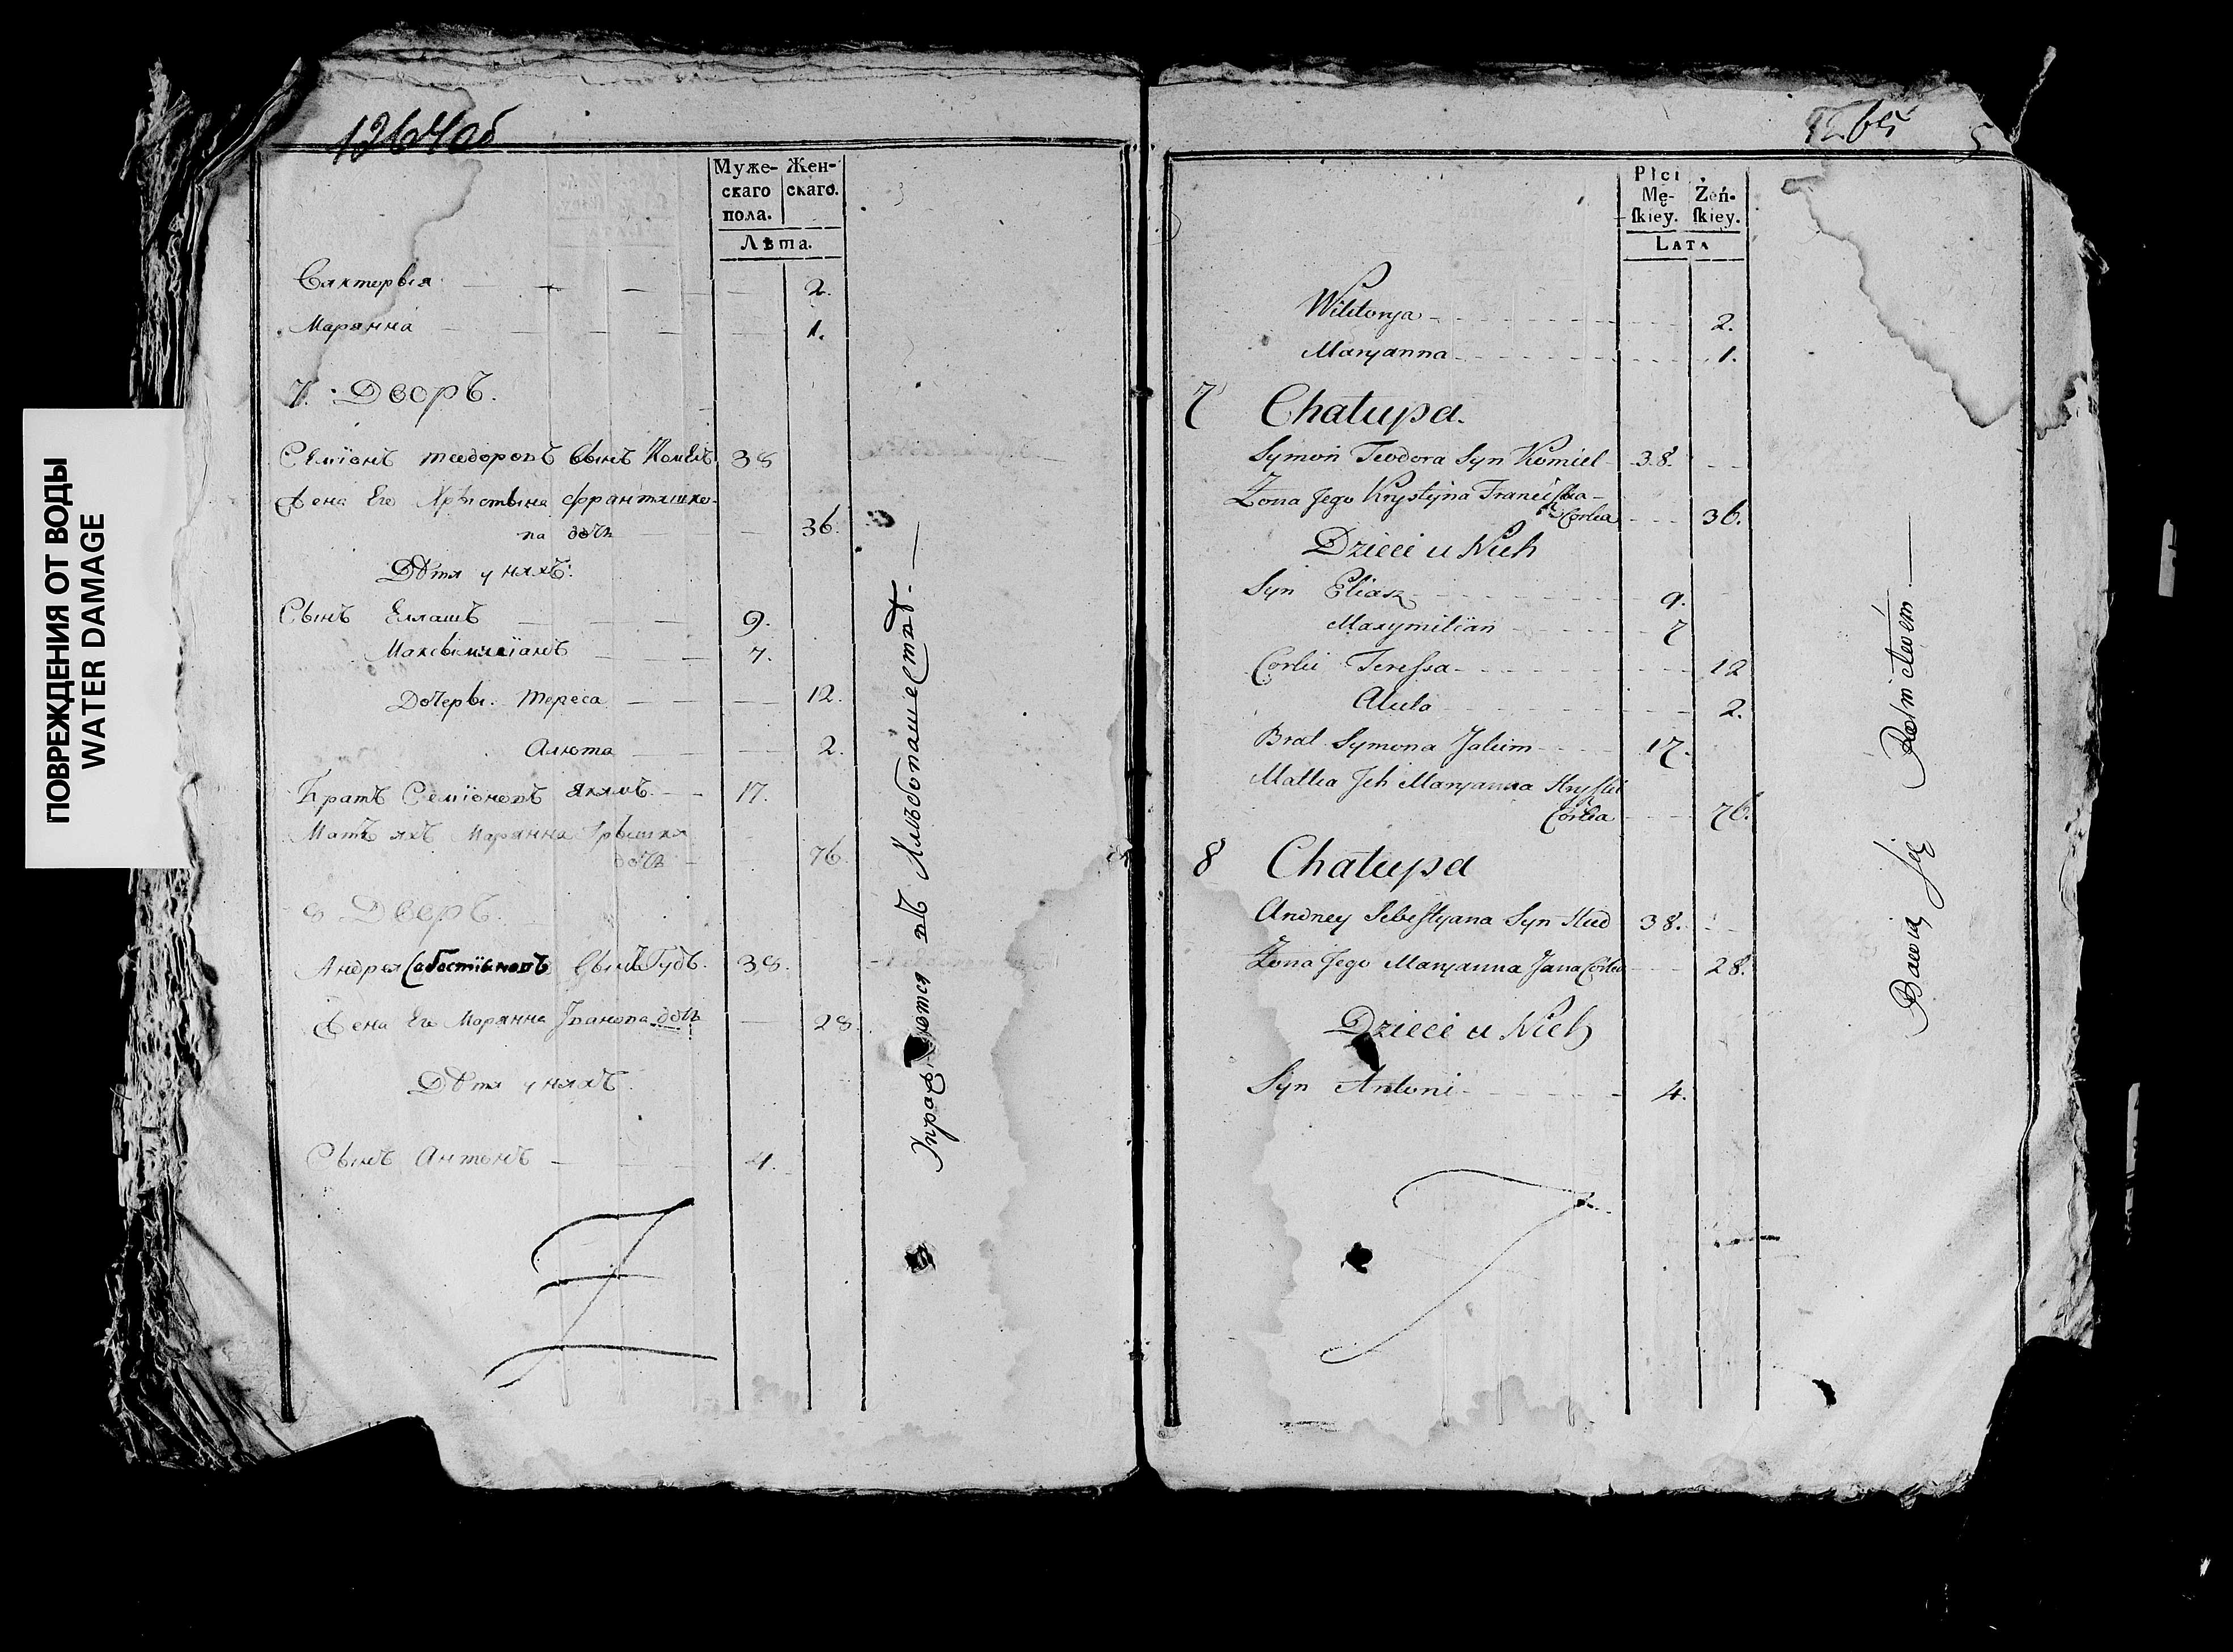 ПОВРЕЖДЕНИЯ ОТ ВОДЫ
WATER DAMAGE
1264об
Муже-
скаго
пола.
Жен-
скаго.
Лѣта.
Вяктерыя 2.
Марянна 1.
7. Дворъ.
Семіонъ теодоровъ Сынъ Комелъ 38
Жена Его Крыстына франтишко-
ва дочь 36.
Дѣтя у няхъ:
Сынъ Елляшъ 9.
Максымяліанъ 7.
Дочеры. Тереса 12.
Алюта 2.
Братъ Семіоновъ Якимъ 17.
Мать яхъ Марянна Грышки
дочь 76.
8 Дворъ.
Андрея Сабестіановъ Сынъ Гудъ. 38.
Жена Его Марянна Іванова дочь 28.
Дѣтя у няхъ
Сынъ Антонъ 4.
въ Хлѣбопашествѣ.
1265
5
Płci
Mę-
skiey.
Żeń-
skiey.
LATA
Wiktorya 2.
Maryanna 1.
7 Chałupa.
Symon Teodora Syn Komiel 38.
Żona Jego Krystyna Franciszka
Corka 36.
Dzieci u Nich
Syn Eliasz 9.
Maxymilian 7
Corki Teressa 12
Aluta 2.
Brat Symona Jakim 17.
Matka Jch Maryanna Hryszki
Corka 76.
8 Chałupa
Andrzey Sebestyana Syn Hud 38.
Żona Jego Maryanna Jana Corka 28.
Dzieci u Nich
Syn Antoni 4.
Bawią się Rolnictwem.